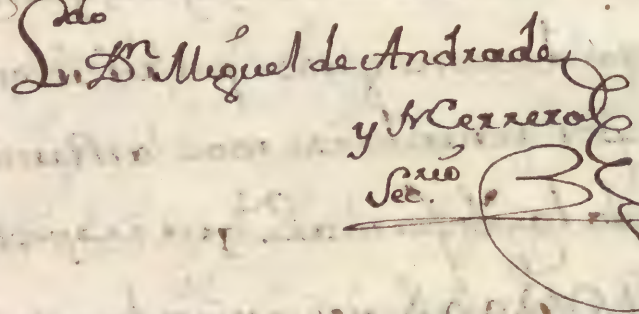 L.do D.n Miguel de Andrade
y Herrera
Sec.rio